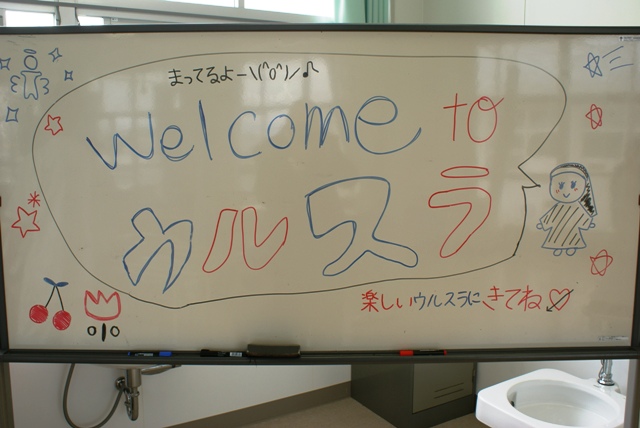 まってるよー\(^o^)/♪
Welcome to
ウルスラ
楽しいウルスラにきてね♡